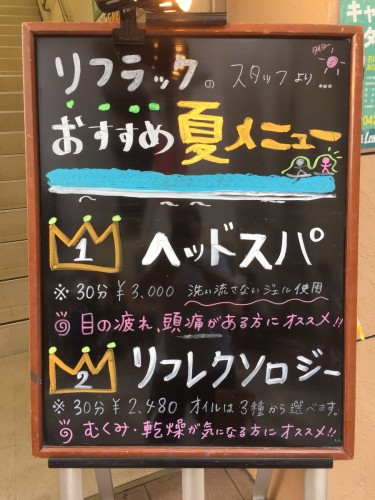 リフラックの スタッフより...
おすすめ夏メニュー
1 ヘッドスパ
※ 30分 ¥3,000 洗い流さないジェル使用
目の疲れ、頭痛がある方にオススメ!!
2 リフレクソロジー
※ 30分 ¥2,480 オイルは3種から選べます。
むくみ・乾燥が気になる方にオススメ!!
キャ
042